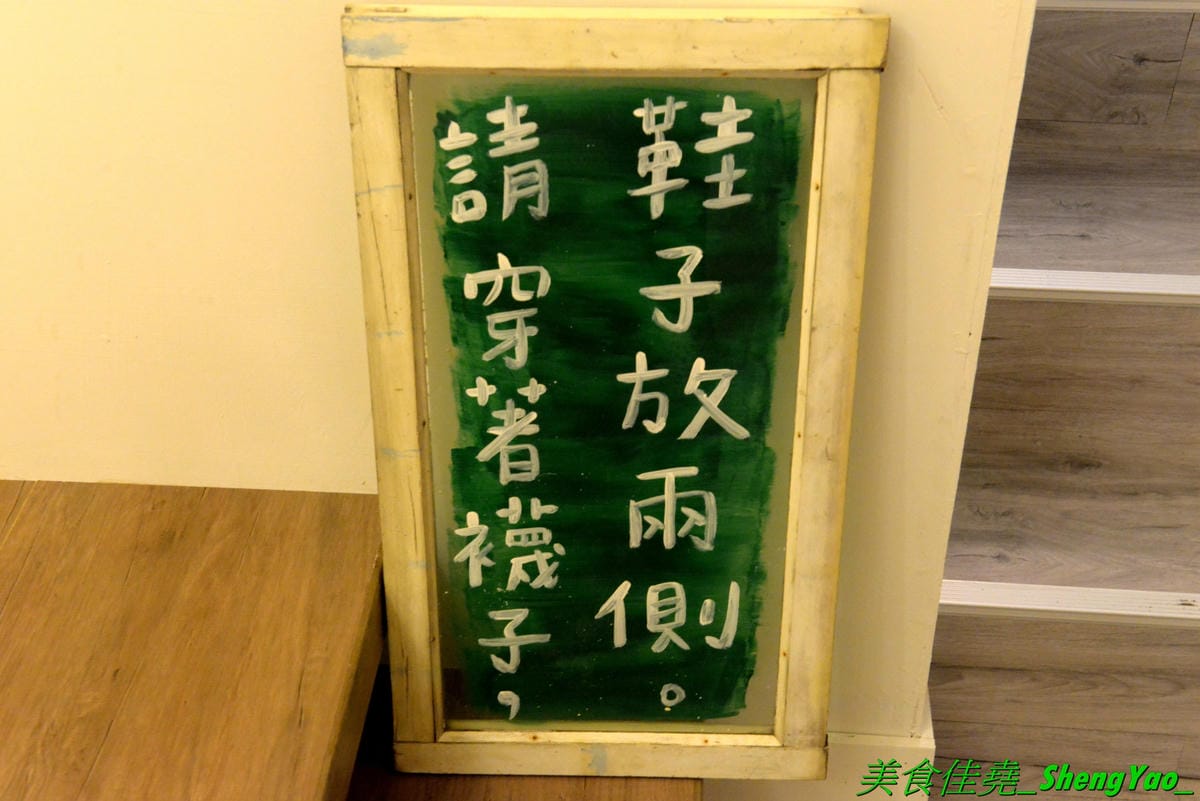 請穿著襪子，
鞋子放兩側。
美食佳堯_ShengYao_